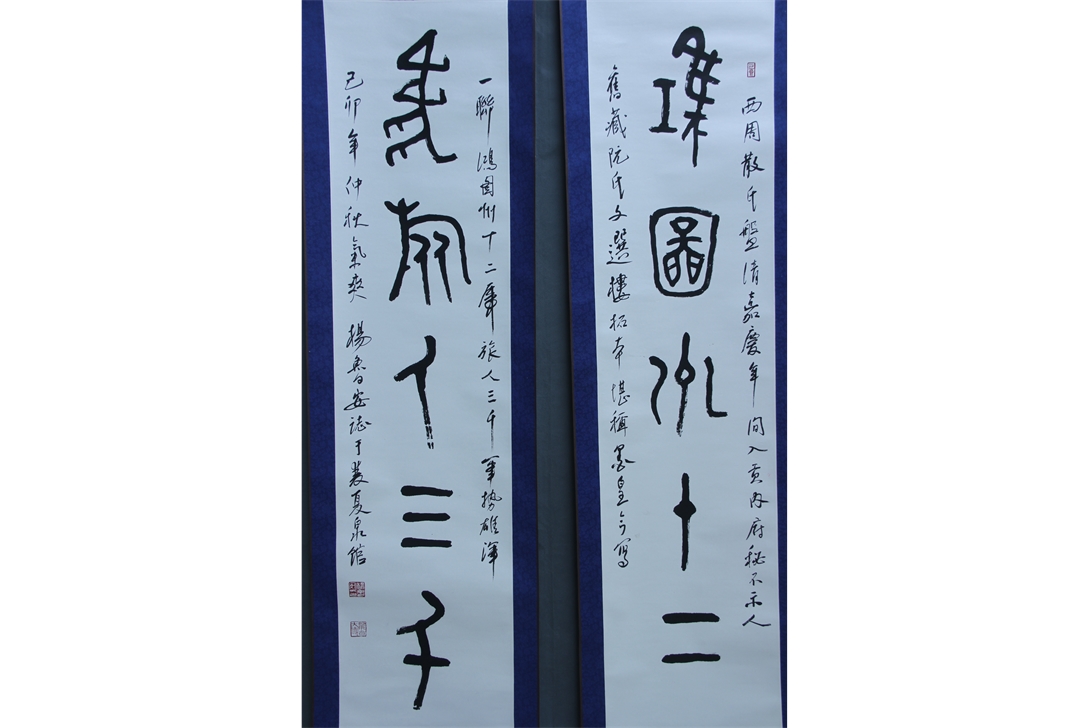 西周散氏盤清嘉慶年間入貢內府秘不示人
鴻圖州十二
舊藏阮氏文選樓拓本堪稱墨皇今寫
一聯鴻圖州十二虎旅人三千筆勢雄渾
虎旅人三千
己卯年仲秋氣爽楊魯安誌于夏泉館